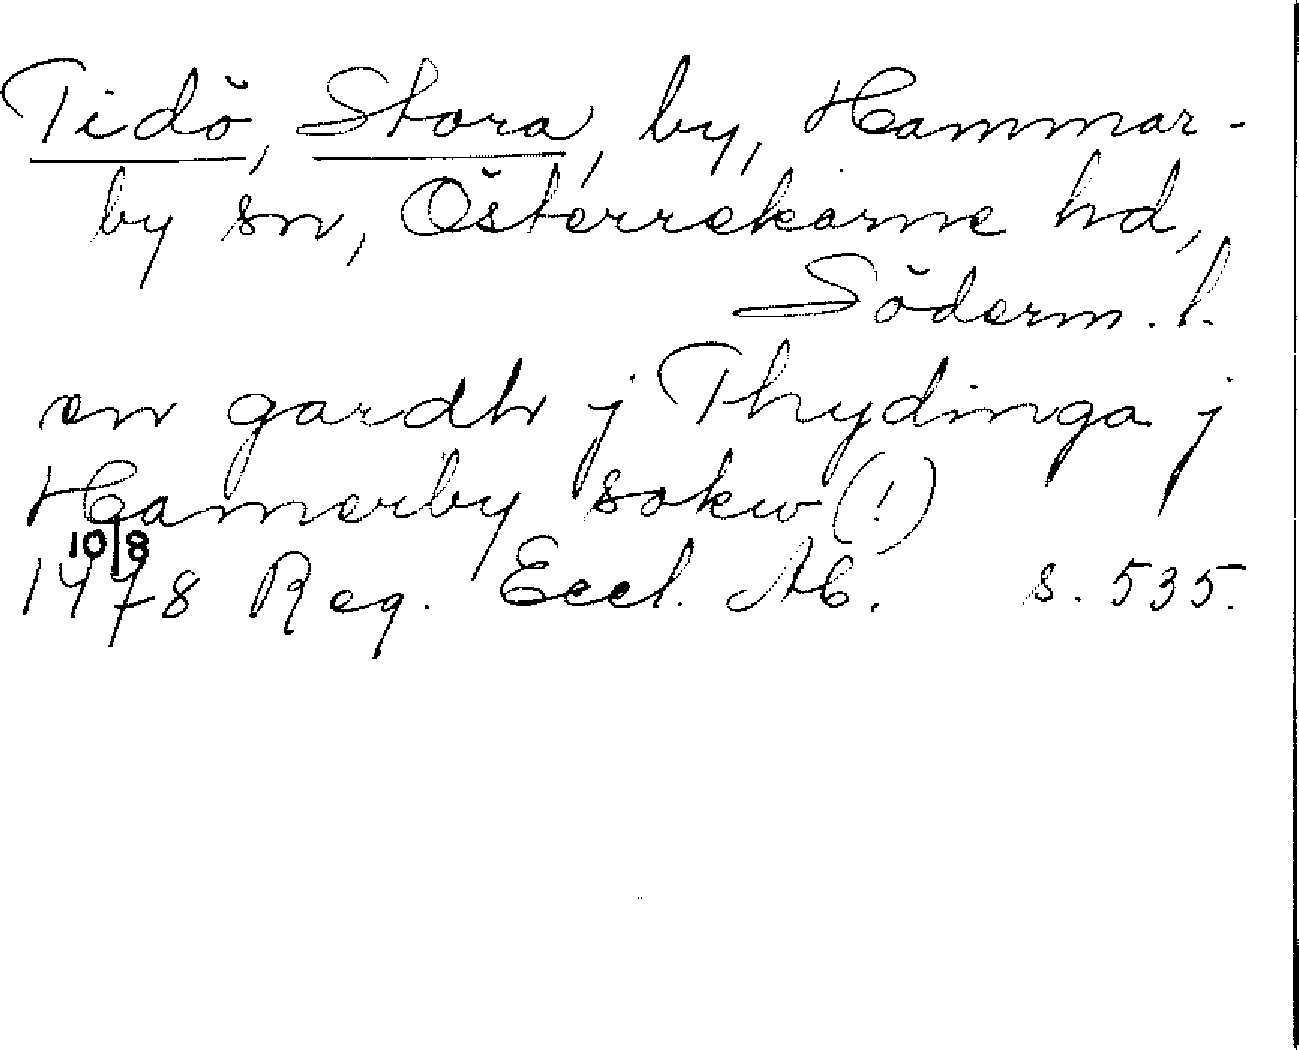 Tidö, Stora, by, Hammar-
by sn, Österrekarne hd,
Söderm. l.
en gardh j Thydinga j
Hamerby sokw (!)
10/8
1478 Reg. Eccl. AC. s. 535.